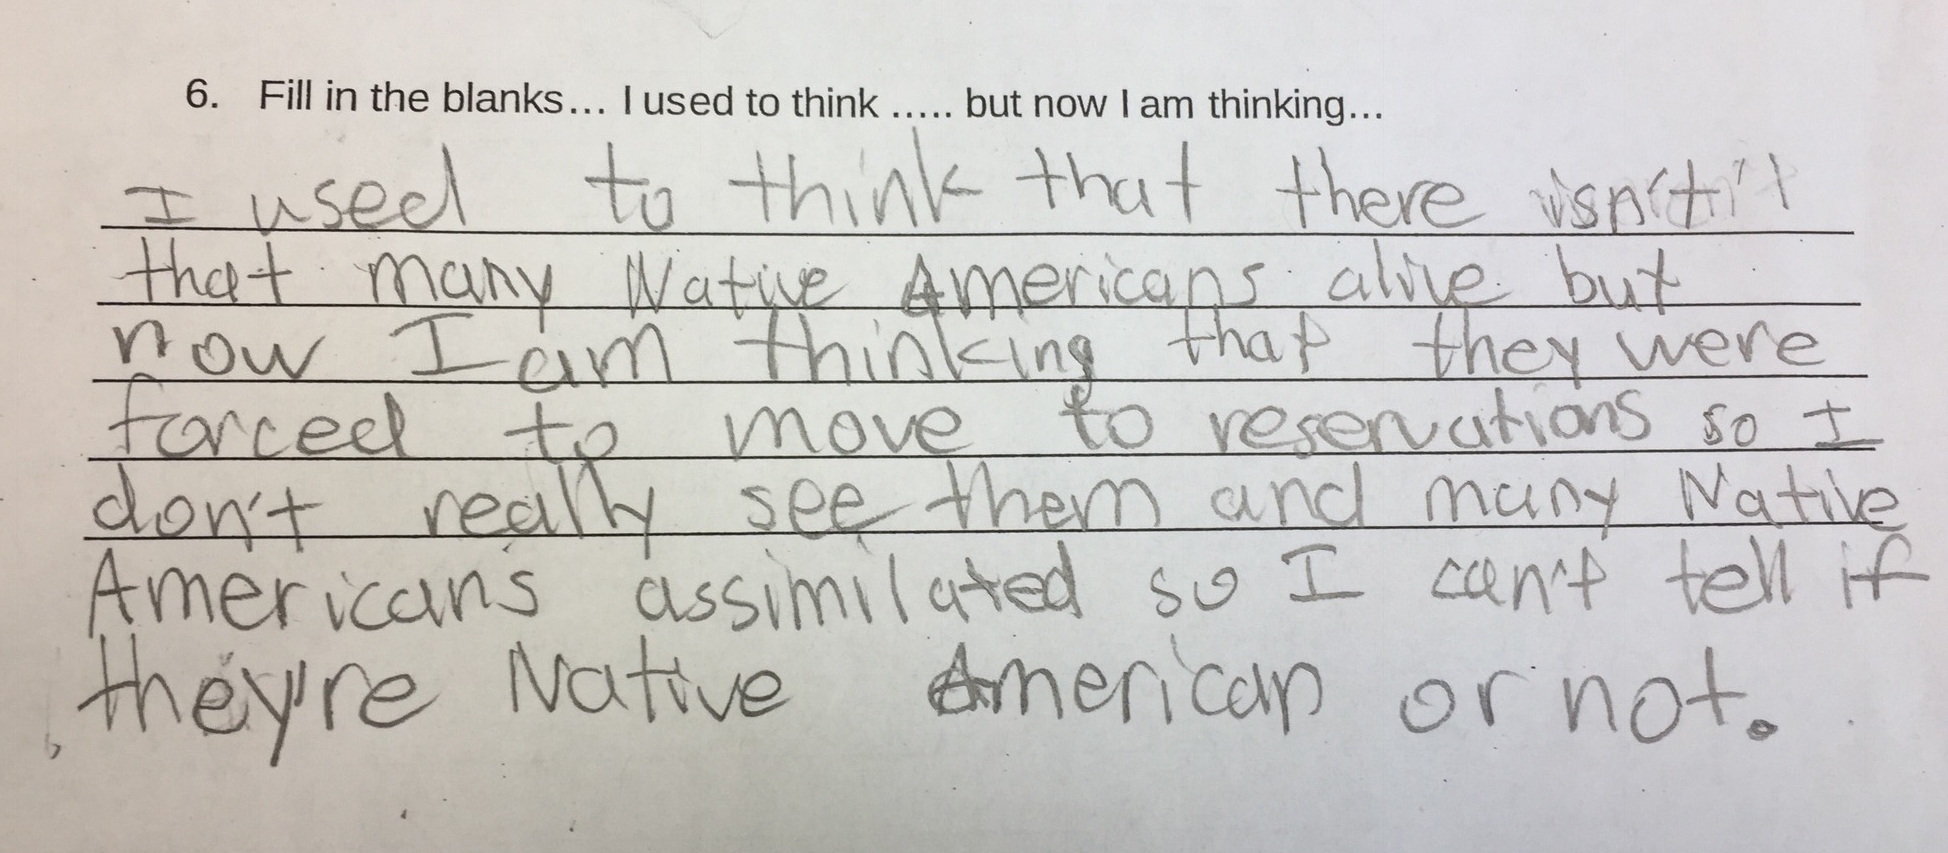 6. Fill in the blanks... I used to think ..... but now I am thinking...
I used to think that there isn't
that many Native Americans alive but
now I am thinking that they were
forced to move to reservations so I
don't really see them and many Native
Americans assimilated so I can't tell if
they're Native American or not.